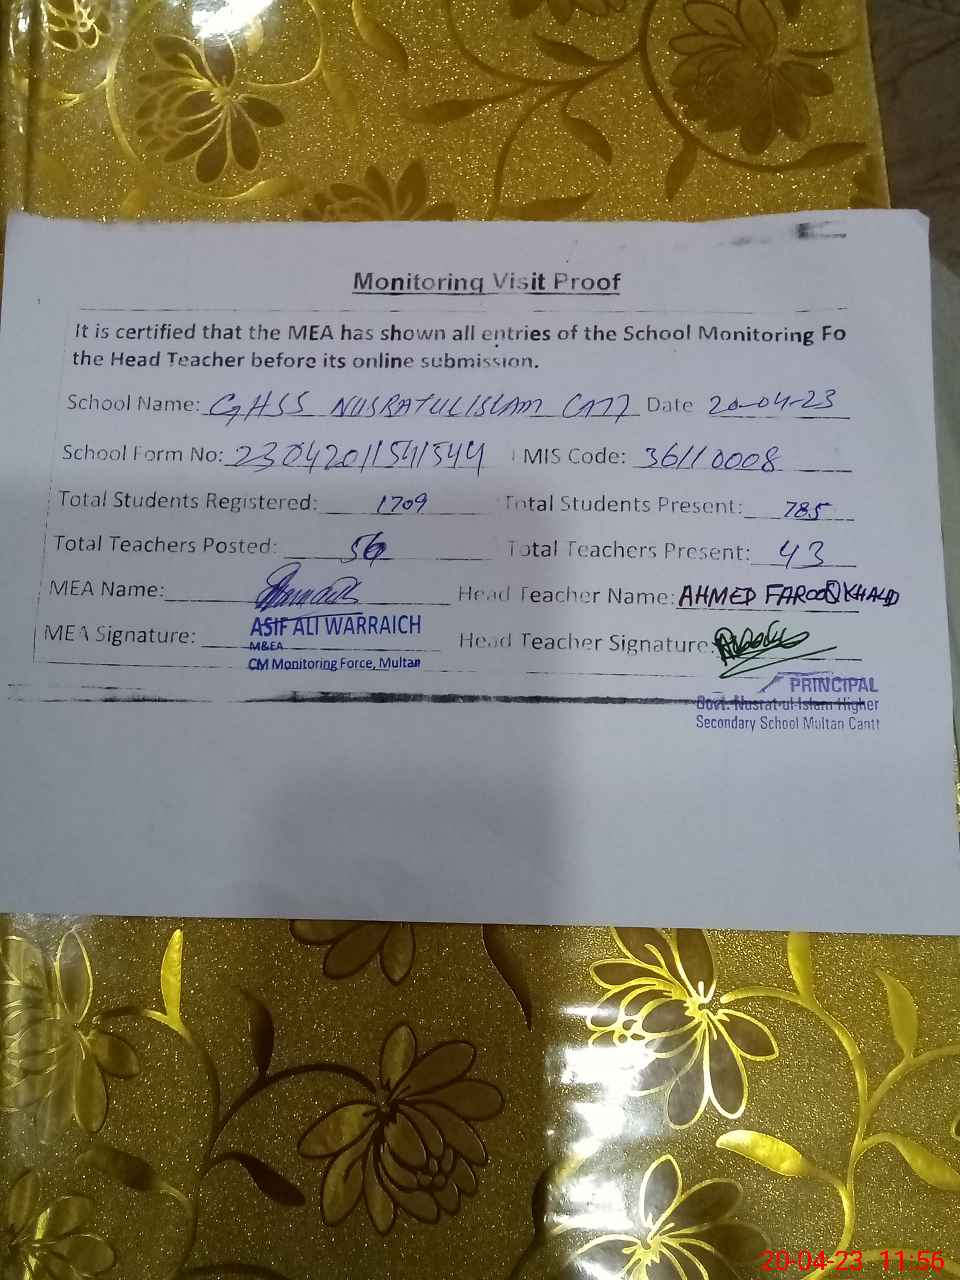 Monitoring Visit Proof
It is certified that the MEA has shown all entries of the School Monitoring Fo
the Head Teacher before its online submission.
School Name: GHSS NUSRATUL ISLAM CATT Date 20-04-23
School Form No: 23042011541544 MIS Code: 36110008
Total Students Registered: 1709 Total Students Present: 785
Total Teachers Posted: 56 Total Teachers Present: 43
MEA Name: Head Teacher Name: AHMED FAROOQ KHALID
MEA Signature: ASIF ALI WARRAICH Head Teacher Signature:
M&EA
CM Monitoring Force, Multan
PRINCIPAL
Govt. Nusrat-ul-Islam Higher
Secondary School Multan Cantt
20-04-23 11:56